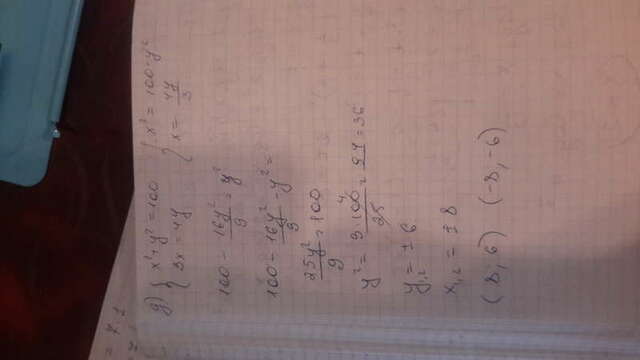 д) { x² + y² = 100 { x² = 100 - y²
{ 3x = 4y { x = 4y/3
100 - 16y²/9 = y²
100 - 16y²/9 - y² =
25y²/9 = 100
y² = 9·100/25 = 9·4 = 36
y₁,₂ = ±6
x₁,₂ = ±8
(8, 6) (-8, -6)